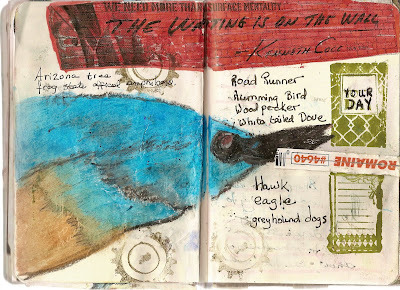 WE NEED MORE THAN SURFACE MENTALITY
THE WRITING IS ON THE WALL
- KENNETH COLE
Arizona tree
frog state official amphibian
Road Runner
Humming Bird
Woodpecker
White tailed Dove
YOUR
DAY
ROMAINE
#4640
Hawk
eagle
greyhound dogs